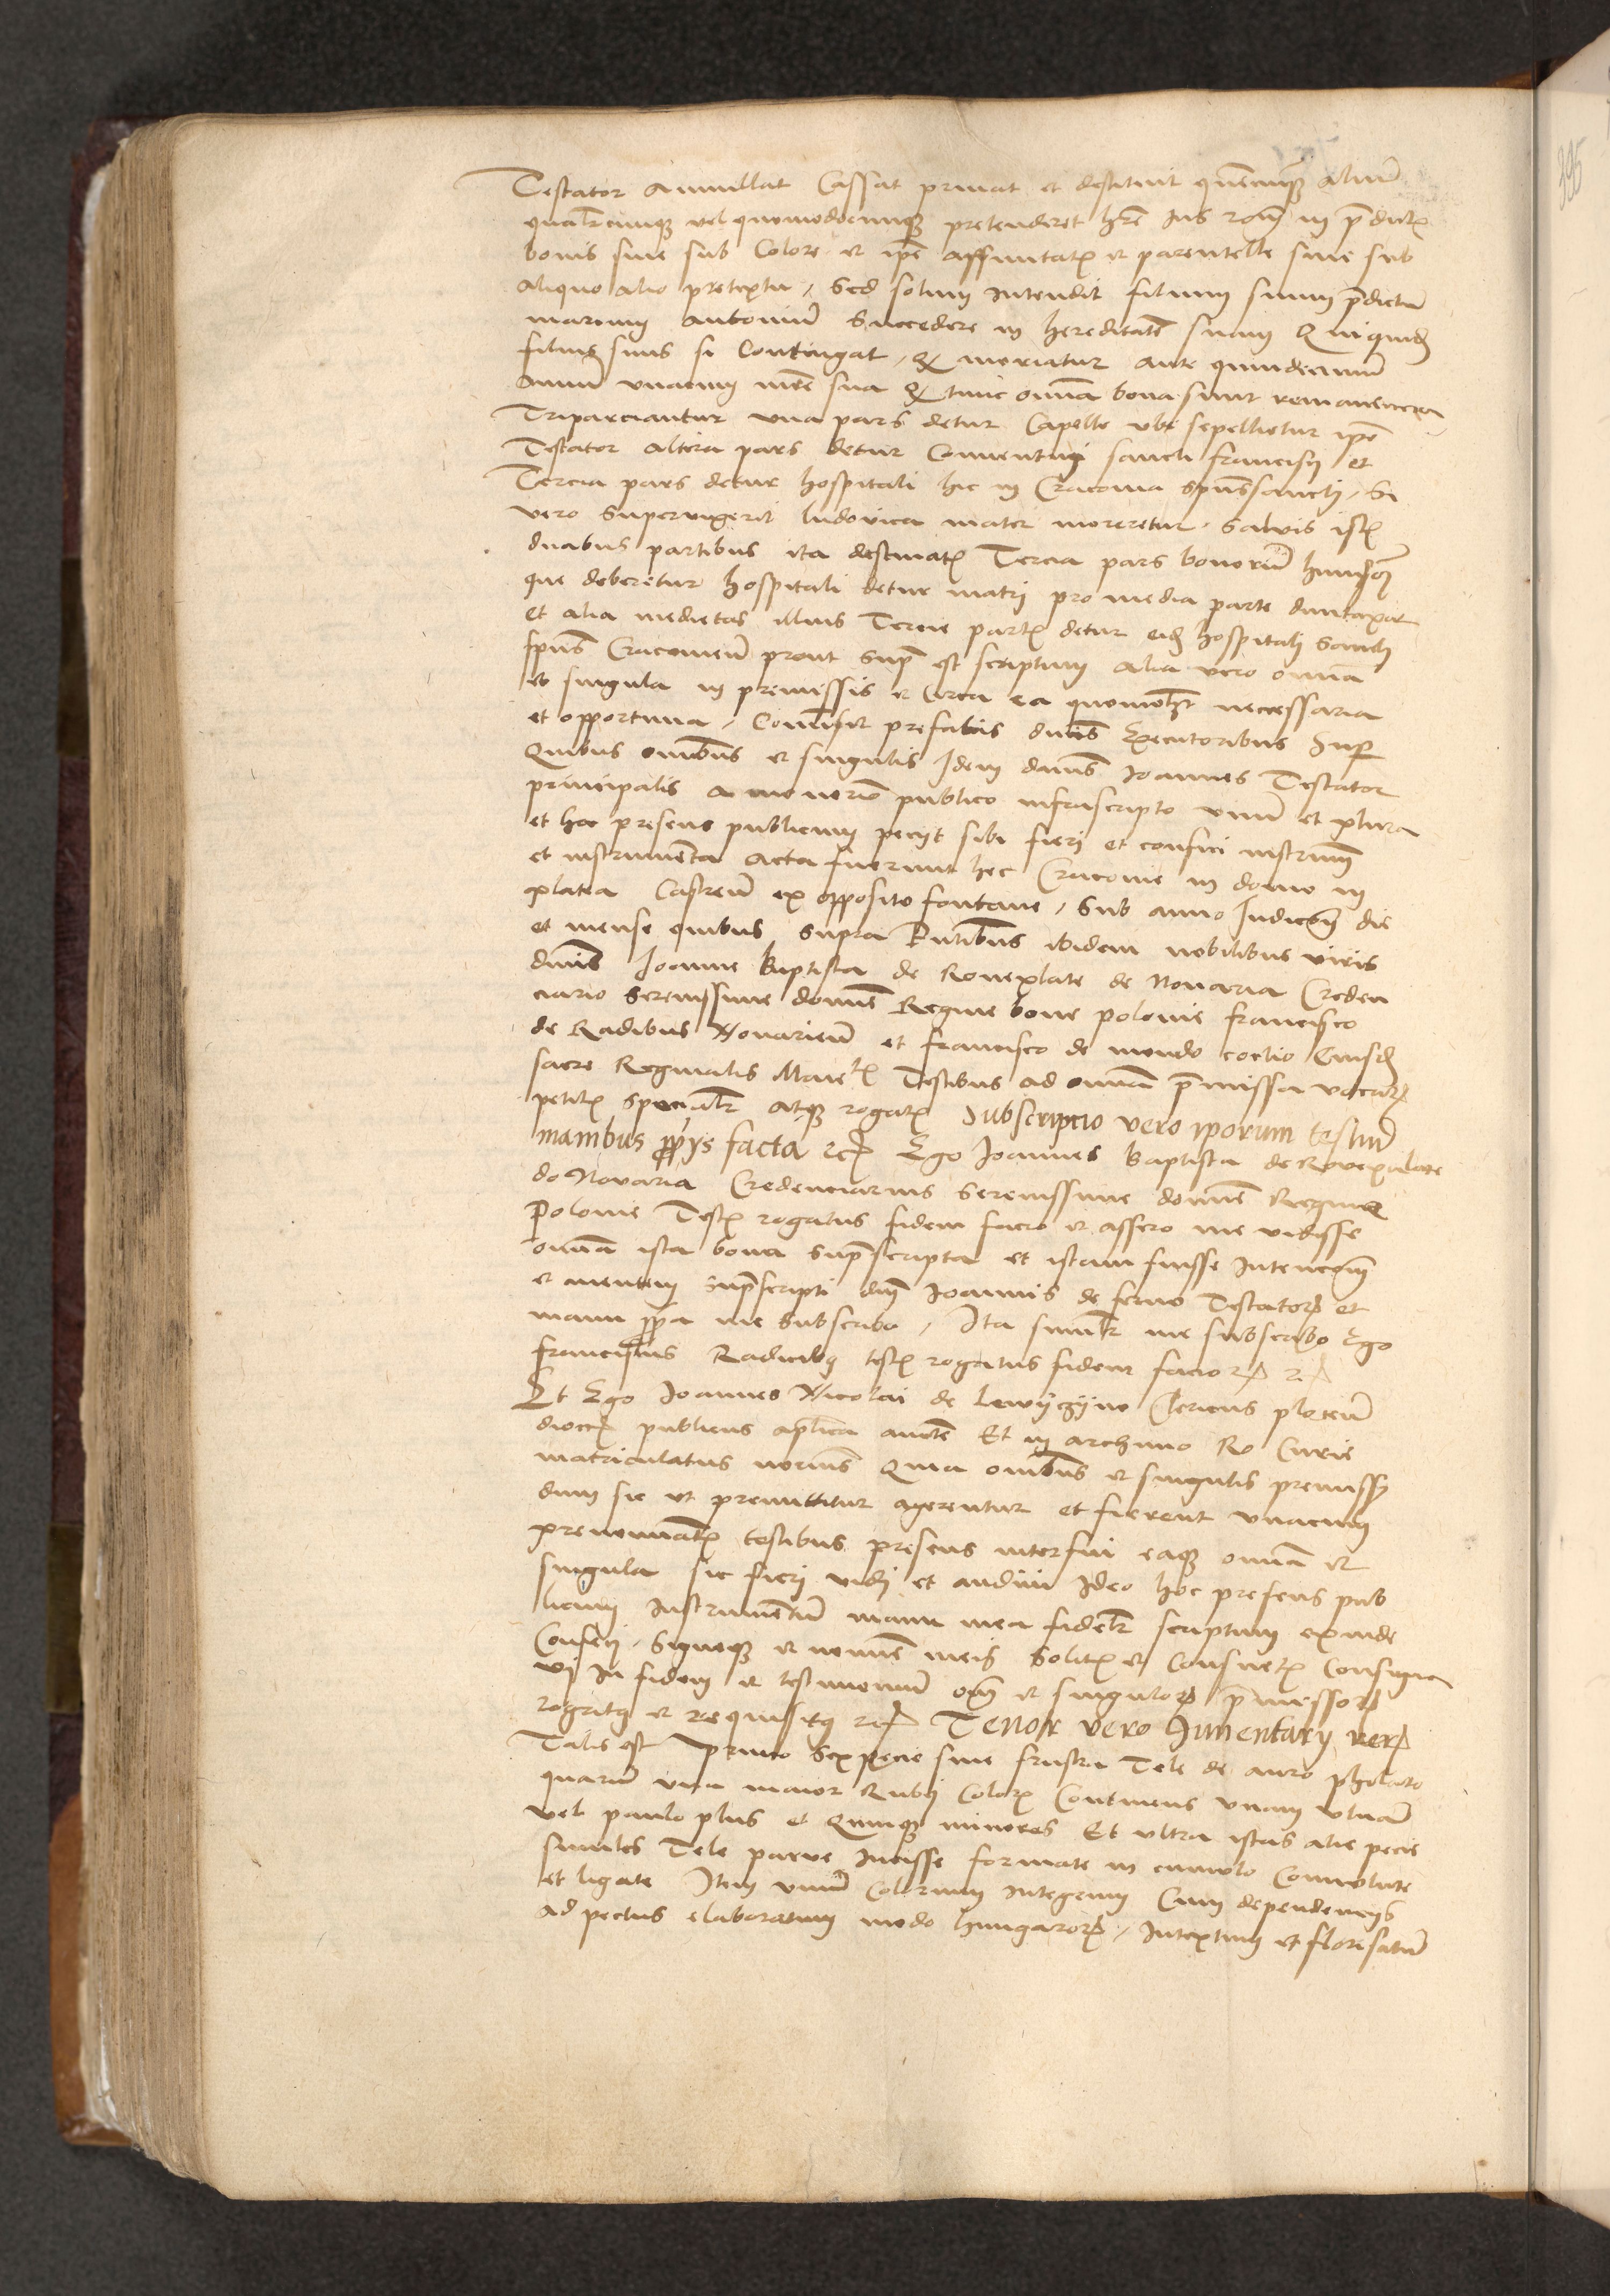 Testator Annullat Cassat privat et destituit quemcunqz alium
qualitercumqz vel quomodocunqz pretenderet hre Ius roni in p̄dictis
bonis sive sub Colore et spe affinitatis et parentelle sive sub
Aliquo alio pretextu, Sed solum intendit filium suum p̄dictum
marcum Antonium succedere in hereditatem suam Quiquid
filius suus si Contingat, qd moriatur ante quindecimum
Annum unacum mre sua qd tunc omnia bona sint remanencia
Tripartiantur una pars detur Capelle ubi sepellietur ipse
Testator altera pars detur Conventui sancti francisci et
Tercia pars detur hospitali hic in Cracovia spūssancti, Si
vero supervixerit ludovica mater moreretur, salvis istis
duabus partibus ita destinatis Tercia pars bonorum huiusmodi
que deberetur hospitali detur matri pro media parte duntaxat
et alia medietas illius Tercie partis detur eidem hospitali sancti
spūs Cracovien prout supra est scriptum Alia vero omnia
et singula in premissis et circa ea quomolibet necessaria
et opportuna, Commisit prefatis duis Executoribus Super
Quibus omnibus et singulis Idem dominus Ioannes Testator
principalis a me notario publico infrascripto unum et plura
et hoc presens publicum peciit sibi fieri et confici instrumentum
et instrumenta Acta fuerunt hec Cracovie in domo in
platea Castren ex opposito fontane, Sub anno Indictione die
et mense quibus supra Pntibus ibidem nobilibus viris
dnis Ioanne baptista de Rovexlate de Novaria Creden
ciario Serenissime domine Regine bone polonie francisco
de Radibus Novarien et francisco de mondo coctio Eiusdem
sacre Reginalis Maiestatis Testibus ad omnia p̄missa vocatis
petitis specialiter atqz rogatis Subscripcio vero iporum testium
manibus propriis facta etc Ego Ioannes baptista de Rovexalate
de Novaria Credenciarius Serenissime domine Regine
Polonie Testis rogatus fidem facio et assero me vidisse
omnia ista bona suprascripta et istam fuisse Intencionem
et mentem suprascripti dni Ioannis de ferno Testatoris et
manu propria me subscribo, Ita similiter me subscribo Ego
franciscus Radicibus testis rogatus fidem facio etc etc
Et Ego Ioannes Nicolai de Lewyczyno Clericus plocen
diocesis publicus aplica aucte Et in archivio Ro Curie
matriculatus notarius Quia omnibus et singulis premissis
dum sic ut premittitur agerentur et fierent unacum
prenominatis testibus presens interfui eaqz omnia et
singula sic fieri vidi et audivi Ideo hoc presens pub
licum Instrumentum manu mea fideliter scriptum exinde
Confeci, Signoqz et nomine meis solitis et Consuetis Consigna
vi In fidem et testimonium omnium et singulorum p̄missorum
rogatus et requisitus etc Tenor vero Inventarii rerum
Talis est Primo sex pecie sive frustra Tele de auro philato
quarum una maior Rubei Coloris Continens unam ulnam
vel paulo plus et Quinqz minores Et ultra istas alie pecie
similes Tele parve Incisse formate in cumulo Convolute
et ligate Item unum Colerium integrum Cum dependenciis
ad pectus elaboratum modo hungarorum, Intextum et florisatum
395